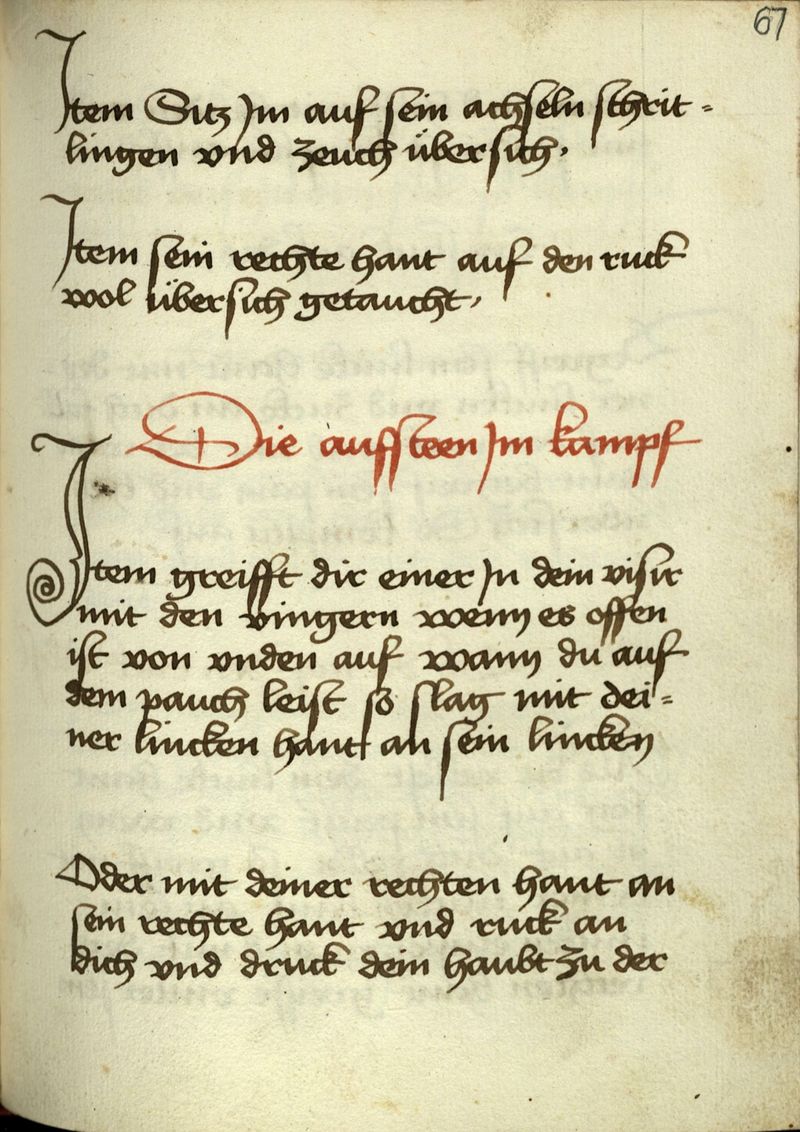 67
Item Sitz Jm auf sein achseln schrit=
lingen vnd zeuch übersich.
Item sein rechte hant auf den ruck
wol übersich getaucht.
Die auffsteen Jm kampf
Item greifft dir einer Jn dein visir
mit den vingern wenn es offen
ist von vnden auf wann du auf
dem pauch leist so slag mit dei=
ner lincken hant an sein lincken
Oder mit deiner rechten hant an
sein rechte hant vnd ruck an
dich vnd druck dein haubt zu der